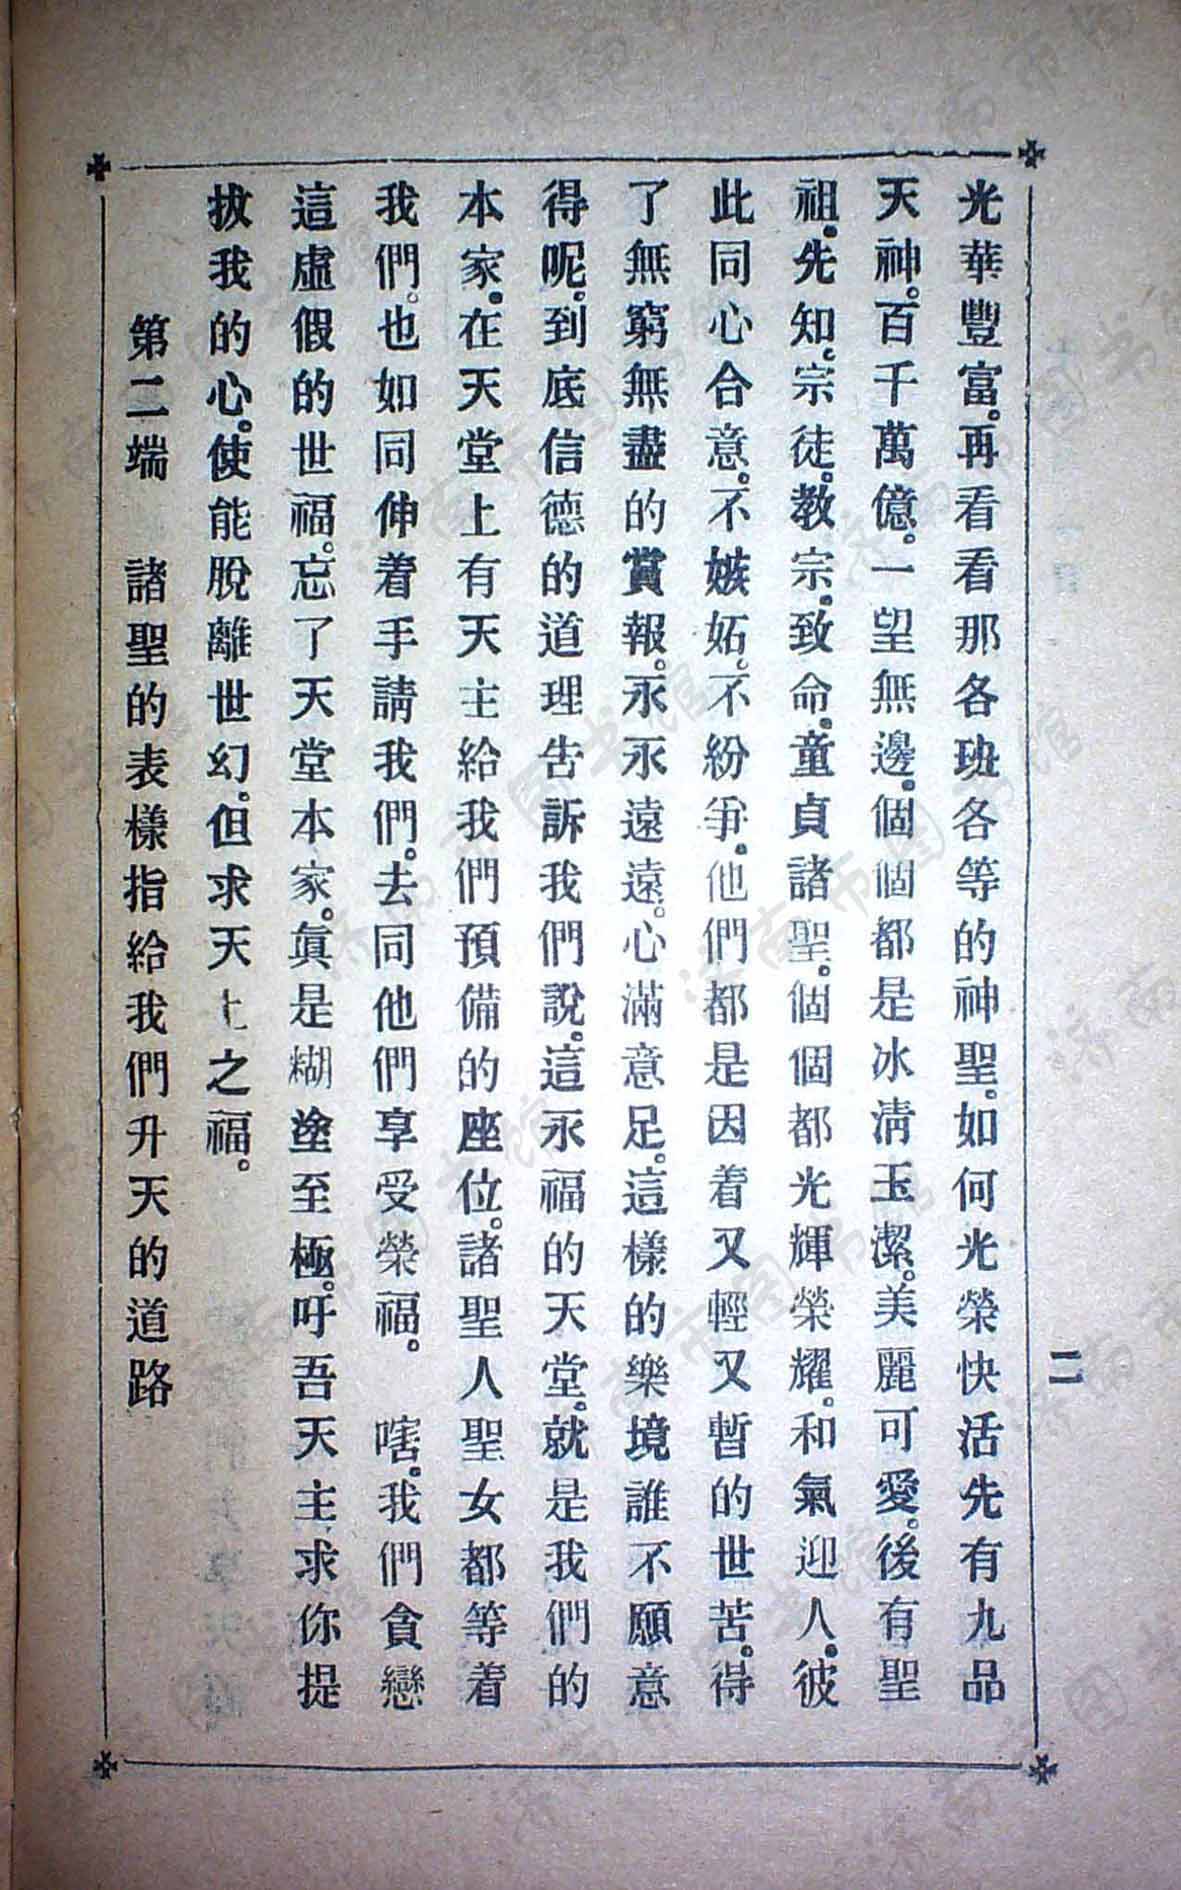 二
光華豐富。再看看那各班各等的神聖。如何光榮快活先有九品
天神。百千萬億。一望無邊。個個都是冰淸玉潔。美麗可愛。後有聖
祖。先知。宗徒。教宗。致命。童貞諸聖。個個都光輝榮耀。和氣迎人。彼
此同心合意。不嫉妬。不紛爭。他們都是因着又輕又暫的世苦。得
了無窮無盡的賞報。永永遠遠。心滿意足。這樣的樂境誰不願意
得呢。到底信德的道理告訴我們說。這永福的天堂。就是我們的
本家。在天堂上有天主給我們預備的座位。諸聖人聖女都等着
我們。也如同伸着手請我們。去同他們享受榮福。　嗐。我們貪戀
這虛假的世福。忘了天堂本家。眞是糊塗至極。吁吾天主求你提
拔我的心。使能脫離世幻。但求天上之福。
第二端　諸聖的表樣指給我們升天的道路
济南市图书馆